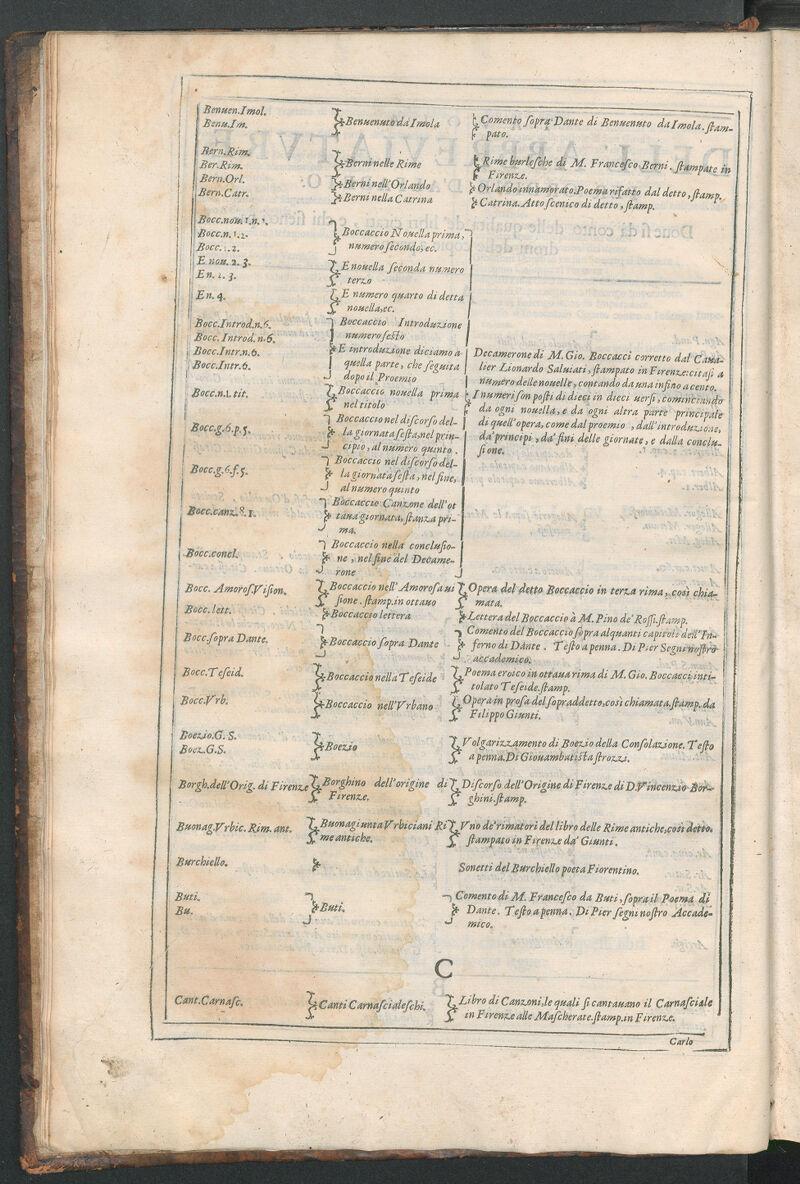 Benuen.Imol.
Benu.Im.
Benuenuto da Imola
Comento ſopra Dante di Benuenuto da Imola. ſtam-
pato.
Bern.Rim.
Ber.Rim.
Berni nelle Rime
Rime burleſche di M. Franceſco Berni. ſtampate in
Firenze.
Bern.Orl.
Berni nell'Orlando
Orlando innamorato. Poema rifatto dal detto, ſtamp.
Bern.Catr.
Berni nella Catrina
Catrina. Atto ſcenico di detto, ſtamp.
Bocc.nou.1.n.2.
Bocc.n.1.2.
Bocc.1.2.
Boccaccio Nouella prima,
numero ſecondo, ec.
E nou. 2. 3.
En. 2. 3.
E nouella ſeconda numero
terzo
En. 4.
E numero quarto di detta
nouella, ec.
Bocc.Introd.n.6.
Bocc. Introd. n.6.
Boccaccio Introduzione
numero ſeſto
Bocc.Intr.n.6.
Bocc.Intr.6.
E introduzione diciamo a
quella parte, che ſeguita
dopo il Proemio
Bocc.n.1. tit.
Boccaccio nouella prima
nel titolo
Bocc.g.6.p.5.
Boccaccio nel diſcorſo del-
la giornata ſeſta, nel prin-
cipio, al numero quinto.
Bocc.g.6.f.5.
Boccaccio nel diſcorſo del-
la giornata ſeſta, nel fine,
al numero quinto
Bocc.canz.8.1.
Boccaccio Canzone dell'ot
taua giornata, ſtanza pri-
ma.
Bocc.concl.
Boccaccio nella concluſio-
ne, nel fine del Decame-
rone
Decamerone di M. Gio. Boccacci corretto dal Caua-
lier Lionardo Saluiati, ſtampato in Firenze: citaſi a
numero delle nouelle, contando da una inſino a cento.
I numeri ſon poſti di dieci in dieci uerſi, cominciando
da ogni nouella, e da ogni altra parte principale
di quell'opera, come dal proemio, dall'introduzione,
da' principi, da' fini delle giornate, e dalla conclu-
ſione.
Bocc. Amoroſ.Viſion.
Boccaccio nell'Amoroſa ui
ſione. ſtamp. in ottauo
Opera del detto Boccaccio in terza rima, coſi chia-
mata.
Bocc. lett.
Boccaccio lettera
Lettera del Boccaccio à M. Pino de' Roſſi. ſtamp.
Bocc.ſopra Dante.
Boccaccio ſopra Dante
Comento del Boccaccio ſopra alquanti capitoli dell'In-
ferno di Dante. Teſto a penna. Di Pier Segni noſtro
accademico.
Bocc.Teſeid.
Boccaccio nella Teſeide
Poema eroico in ottaua rima di M. Gio. Boccacci inti-
tolato Teſeide. ſtamp.
Bocc.Vrb.
Boccaccio nell'Vrbano
Opera in proſa del ſopraddetto, coſì chiamata. ſtamp. da
Filippo Giunti.
Boezio.G.S.
Boez.G.S.
Boezio
Volgarizzamento di Boezio della Conſolazione. Teſto
a penna. Di Giouambatiſta ſtrozzi.
Borgh.dell'Orig. di Firenze
Borghino dell'origine di
Firenze.
Diſcorſo dell'Origine di Firenze di D.Vincenzio Bor-
ghini. ſtamp.
Buonag.Vrbic. Rim. ant.
Buonagiunta Vrbiciani Ri
me antiche.
Vno de' rimatori del libro delle Rime antiche, coſi detto,
ſtampato in Firenze da' Giunti.
Burchiello.
Sonetti del Burchiello poeta Fiorentino.
Buti.
Bu.
Buti.
Comento di M. Franceſco da Buti, ſopra il Poema di
Dante. Teſto a penna. Di Pier ſegni noſtro Accade-
mico.
C
Cant.Carnaſc.
Canti Carnaſcialeſchi.
Libro di Canzoni, le quali ſi cantauano il Carnaſciale
in Firenze alle Maſcherate. ſtamp. in Firenze.
Carlo